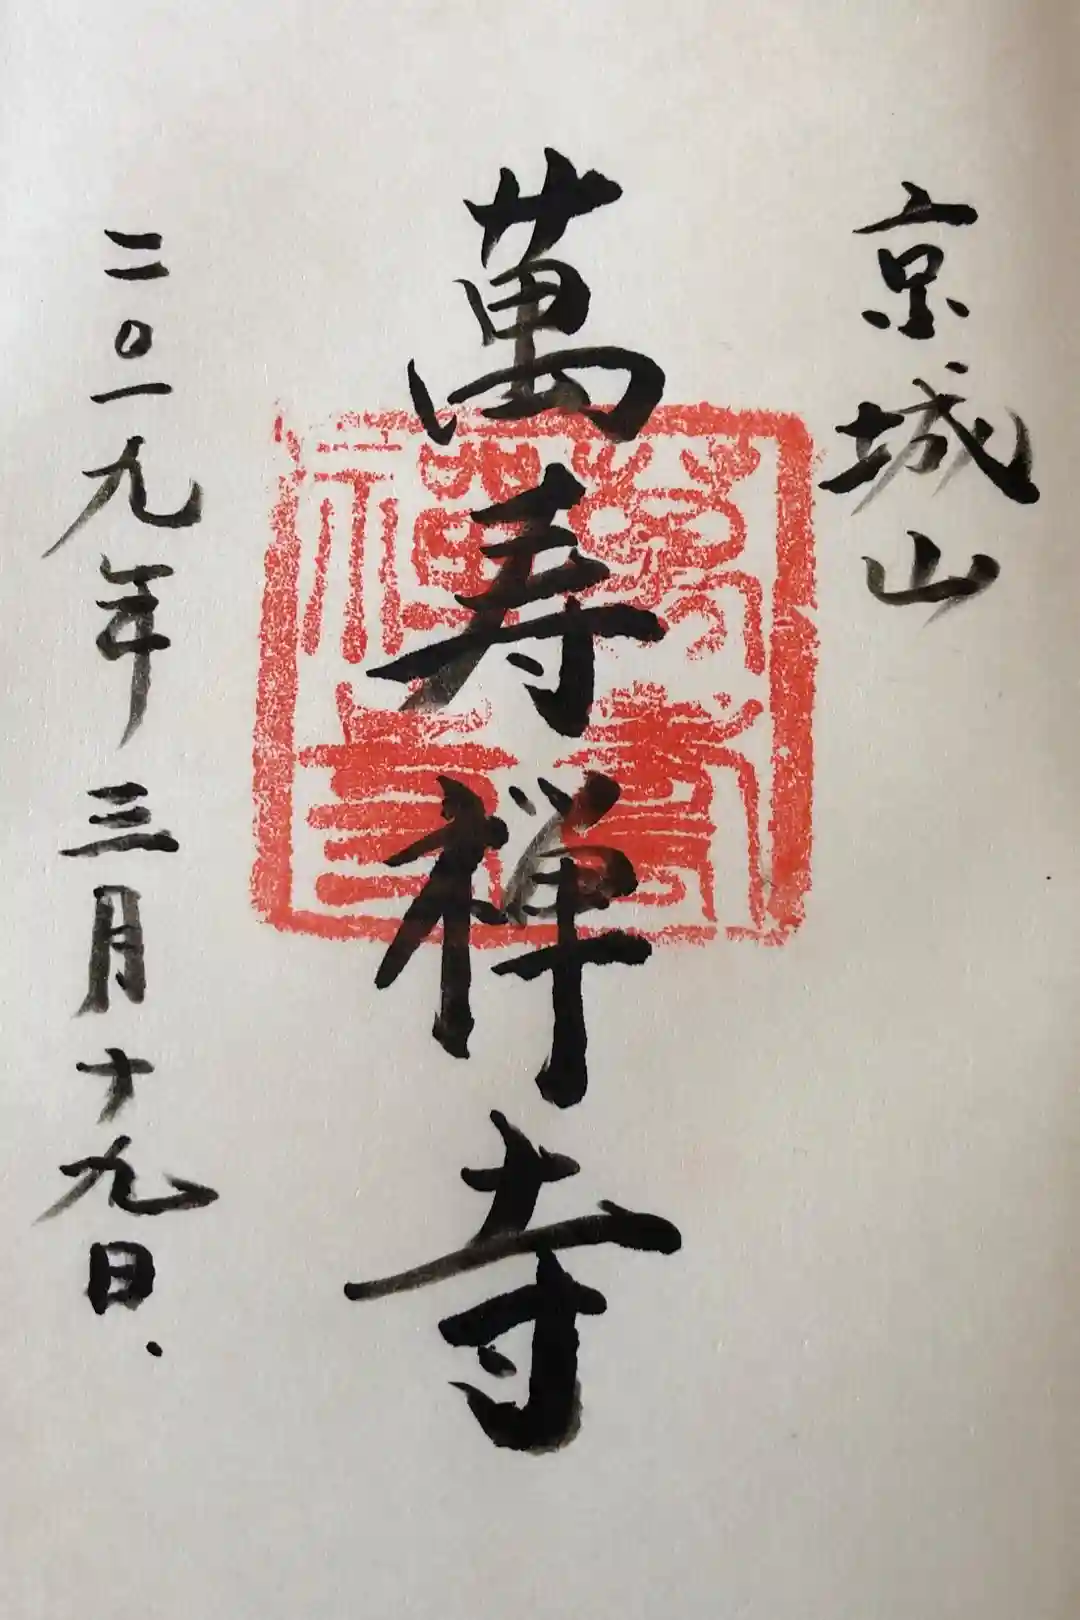 京城山
萬寿禅寺
二〇一九年三月十九日.
萬壽禪寺